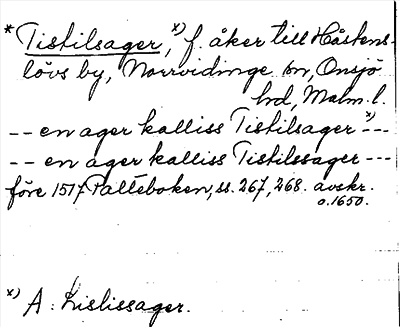 * Tistilsager,ˣ⁾ f. åker till Håstens-
lövs by, Norrvidinge sn, Onsjö
hd, Malm. l.
-- en ager kalliss Tistilsager ˣ⁾---
-- en ager kalliss Tistilssager ---
före 1517 Palteboken, ss. 267, 268. avskr.
o. 1650.
ˣ⁾ A: Lislissager.